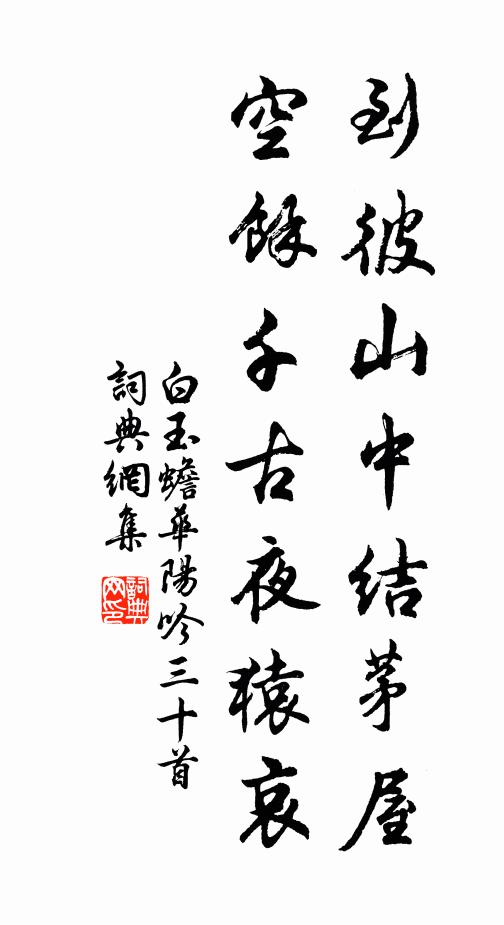 到彼山中結茅屋
空餘千古夜猿哀
白玉蟾華陽吟三十首
詞典網集
詞典
网印